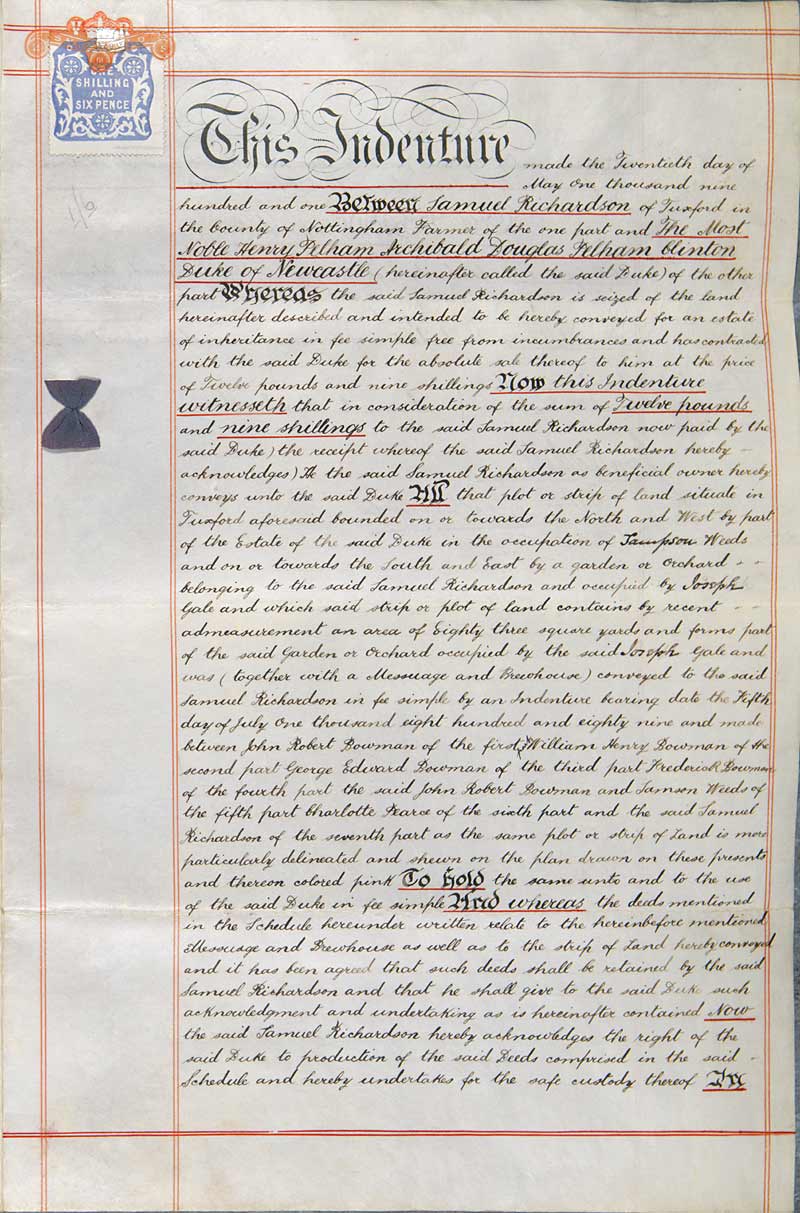 V R
ONE
SHILLING
AND
SIX PENCE
1/9
This Indenture made the Twentieth day of
May One thousand nine
hundred and one Between Samuel Richardson of Tuxford in
the County of Nottingham Farmer of the one part and The Most
Noble Henry Pelham Archibald Douglas Pelham Clinton
Duke of Newcastle (hereinafter called the said Duke) of the other
part Whereas the said Samuel Richardson is seized of the land
hereinafter described and intended to be hereby conveyed for an estate
of inheritance in fee simple free from incumbrances and has contracted
with the said Duke for the absolute sale thereof to him at the price
of Twelve pounds and nine shillings Now this Indenture
witnesseth that in consideration of the sum of Twelve pounds
and nine shillings to the said Samuel Richardson now paid by the
said Duke) the receipt whereof the said Samuel Richardson hereby -
acknowledges) He the said Samuel Richardson as beneficial owner hereby
conveys unto the said Duke All that plot or strip of land situate in
Tuxford aforesaid bounded on or towards the North and West by part
of the Estate of the said Duke in the occupation of Sampson Weeds
and on or towards the South and East by a garden or Orchard - -
belonging to the said Samuel Richardson and occupied by Joseph
Gale and which said strip or plot of land contains by recent - -
admeasurement an area of Eighty three square yards and forms part
of the said Garden or Orchard occupied by the said Joseph Gale and
was (together with a Messuage and Brewhouse) conveyed to the said
Samuel Richardson in fee simple by an Indenture bearing date the Fifth
day of July One thousand eight hundred and eighty nine and made
between John Robert Bowman of the first William Henry Bowman of the
second part George Edward Bowman of the third part Frederick Bowman
of the fourth part the said John Robert Bowman and Samson Weeds of
the fifth part Charlotte Pearce of the sixth part and the said Samuel
Richardson of the seventh part as the same plot or strip of Land is more
particularly delineated and shewn on the plan drawn on these presents
and thereon colored pink To Hold the same unto and to the use
of the said Duke in fee simple And whereas the deeds mentioned
in the Schedule hereunder written relate to the hereinbefore mentioned
Messuage and Brewhouse as well as to the strip of Land hereby conveyed
and it has been agreed that such deeds shall be retained by the said
Samuel Richardson and that he shall give to the said Duke such
acknowledgment and undertaking as is hereinafter contained Now
the said Samuel Richardson hereby acknowledges the right of the
said Duke to production of the said Deeds comprised in the said -
Schedule and hereby undertakes for the safe custody thereof In